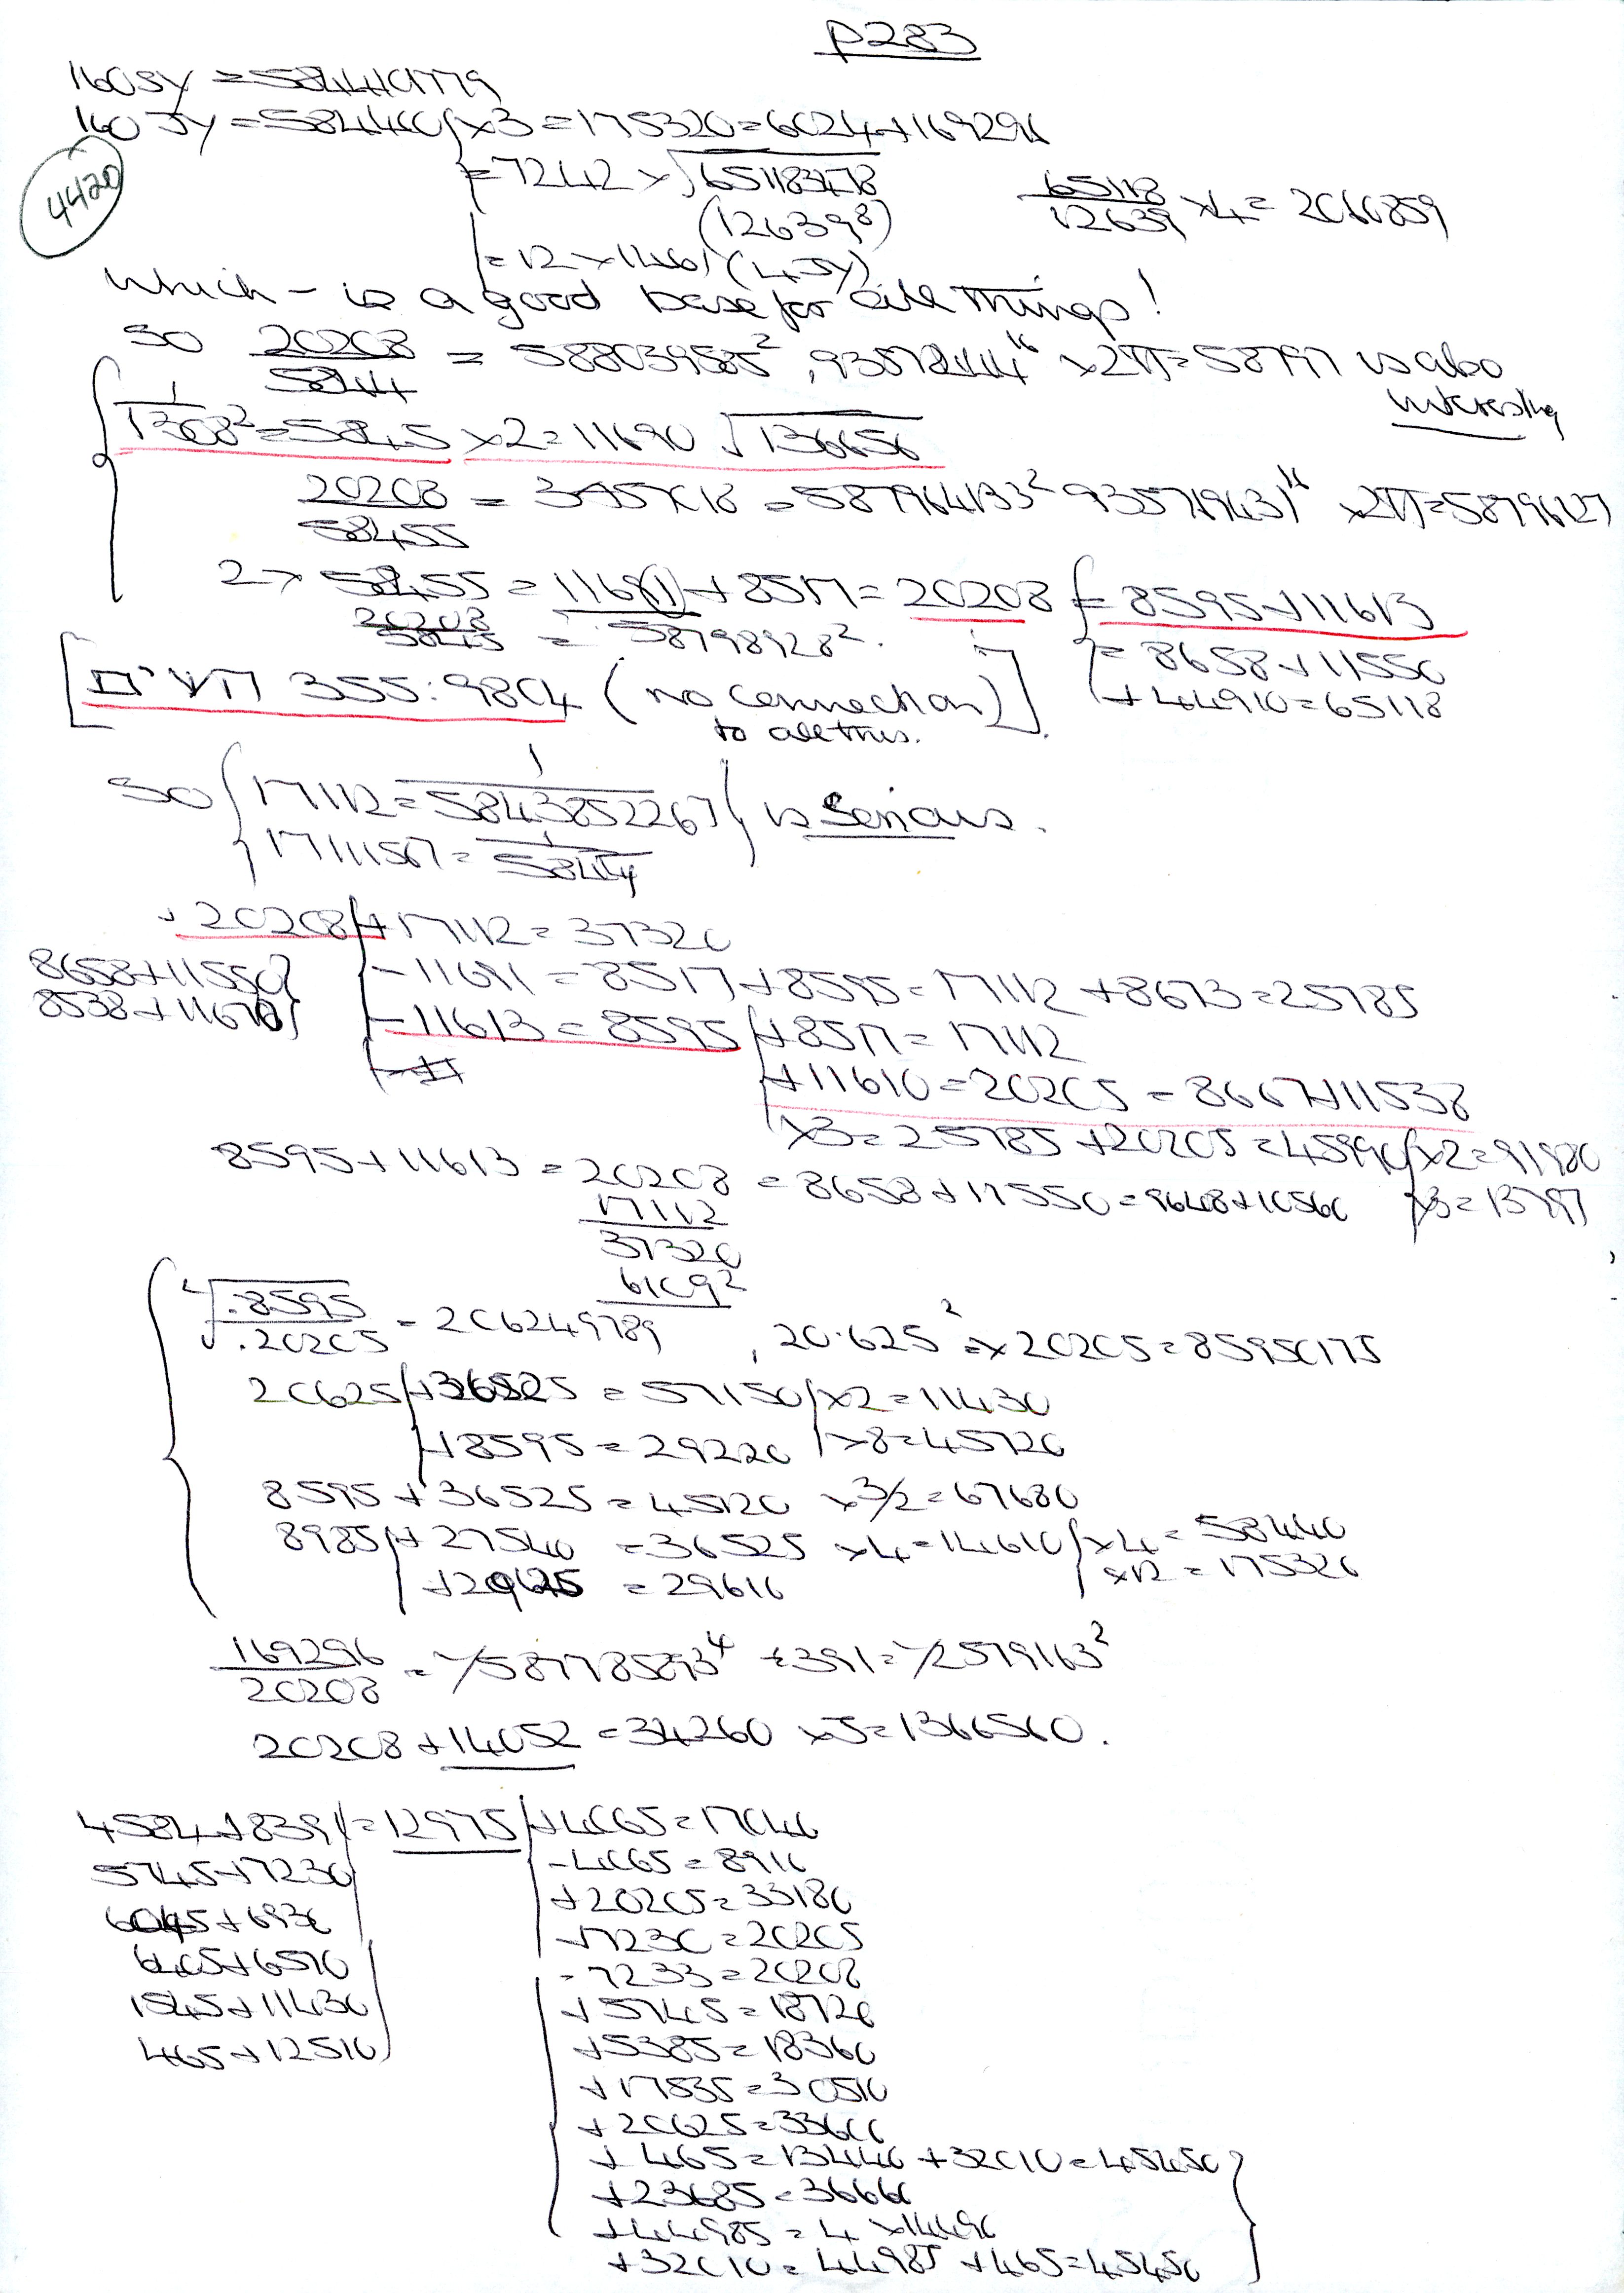 p283
160SY = 584401779
160 JY = 584400 x3 = 175320 = 6024 + 169296
4420
= 7242 x √651183478
(12639⁸)
65118/12639 x4 = 2060859
= 12 x 1461 (4JY)
Which - is a good base for all Things!
SO 20208/5844 = 588039585², 935782444¹⁶ x2π = 58797 is also
interesting
1/1368² = 5845 x2 = 11690 √136656
20208/58455 = 3457018 = 587964133² 935719431¹⁶ x2π = 58796127
2 x 58455 = 11691 + 8517 = 20208 = 8595 + 11613
20208/5845 = 58798928².
= 8658 + 11550
+ 44910 = 65118
355:9804 (no connection)
to all this.
SO 17112 = 1/5843852267 is Serious.
17111567 = 1/5844
20208 + 17112 = 37320
8658 + 11550
- 11691 = 8517 + 8595 = 17112 + 8673 = 25785
8538 + 11670
- 11613 = 8595 + 8517 = 17112
+ 11610 = 20205 = 8667 + 11538
x3 = 25785 + 20205 = 45990 x2 = 91980
8595 + 11613 = 20208 = 8658 + 11550 = 9648 + 10560 x3 = 13797
17112
37320
6109²
⁴√.8595/.20205 = 206249789, 20.625² x 20205 = 85950175
20625 + 36525 = 57150 x2 = 11430
+ 8595 = 29220 x8 = 45720
8595 + 36525 = 45120 x3/2 = 67680
8985 + 27540 = 36525 x4 = 14610 x4 = 58440
+ 20625 = 29610 x12 = 175320
169296/20208 = 1/587785893⁴ ÷391 = 1/2579163²
20208 + 14052 = 34260 x5 = 1366560.
4584 + 8391 = 12975 + 4065 = 17040
5745 + 7230 - 4065 = 8910
6045 + 6930 + 20205 = 33180
6405 + 6570 + 7230 = 20205
1545 + 11430 - 7233 = 20208
465 + 12510 + 5745 = 18720
+ 5385 = 18360
+ 17535 = 30510
+ 20625 = 33600
+ 465 = 13440 + 32010 = 45450
+ 23685 = 36660
+ 44985 = 4 x 14490
+ 32010 = 44985 + 465 = 45450